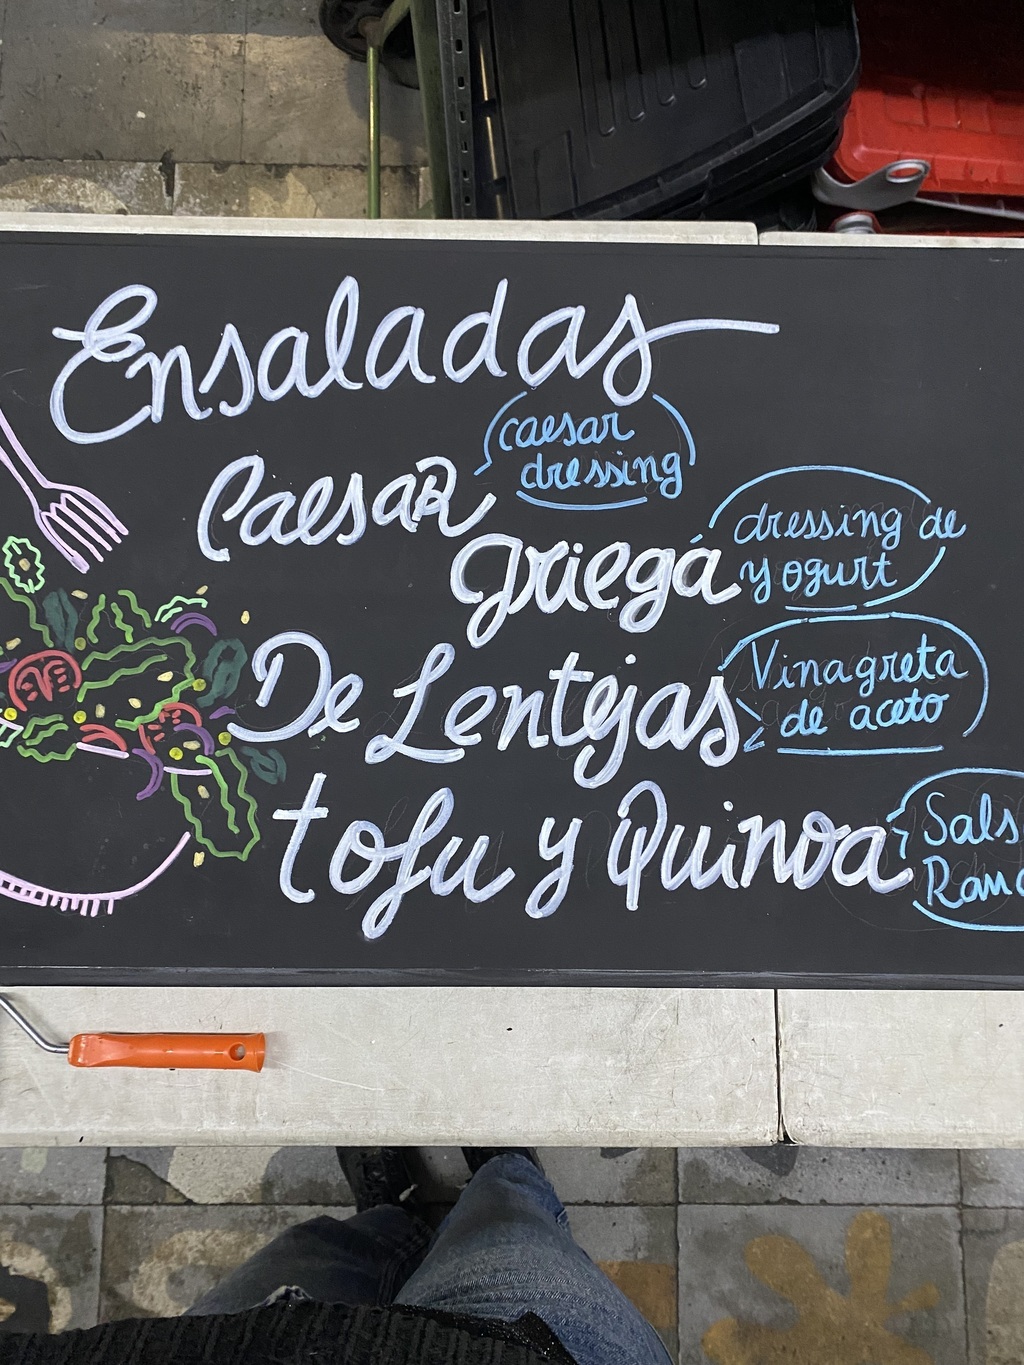 Ensaladas
Caesar
caesar
dressing
griega
dressing de
yogurt
De Lentejas
Vinagreta
de aceto
tofu y Quinoa
Sals
Ran